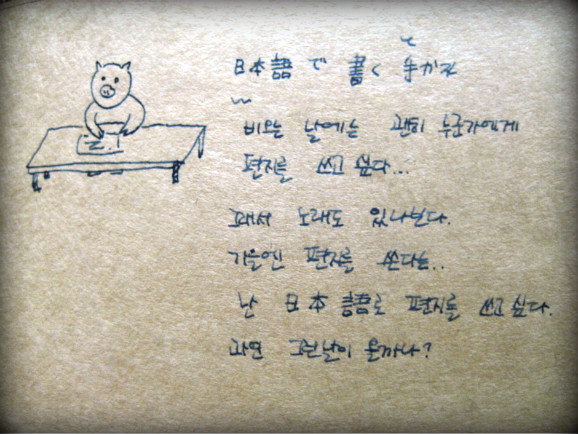 て
日本語で 書く 手がみ
비오는 날에는 괜히 누군가에게
편지를 쓰고 싶다...
그래서 노래도 있나보다.
가을엔 편지를 쓴다는..
난 日本語로 편지를 쓰고싶다.
과연 그런날이 올까나?